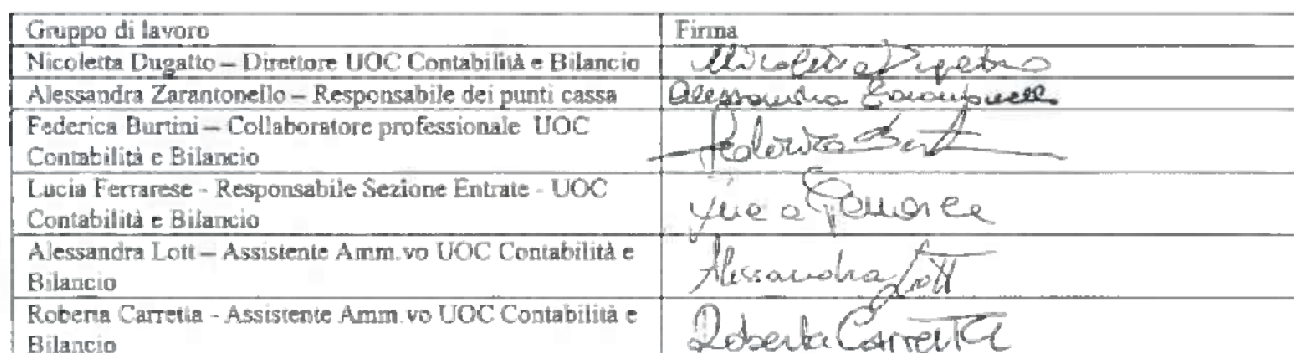 Gruppo di lavoro Firma
Nicoletta Dugatto – Direttore UOC Contabilità e Bilancio
Alessandra Zarantonello – Responsabile dei punti cassa Alessandra Zarantonello
Federica Burtini – Collaboratore professionale UOC
Contabilità e Bilancio Federica
Lucia Ferrarese - Responsabile Sezione Entrate - UOC
Contabilità e Bilancio
Alessandra Lott – Assistente Amm.vo UOC Contabilità e
Bilancio Alessandra Lott
Roberta Carretta - Assistente Amm.vo UOC Contabilità e
Bilancio Roberta Carretta